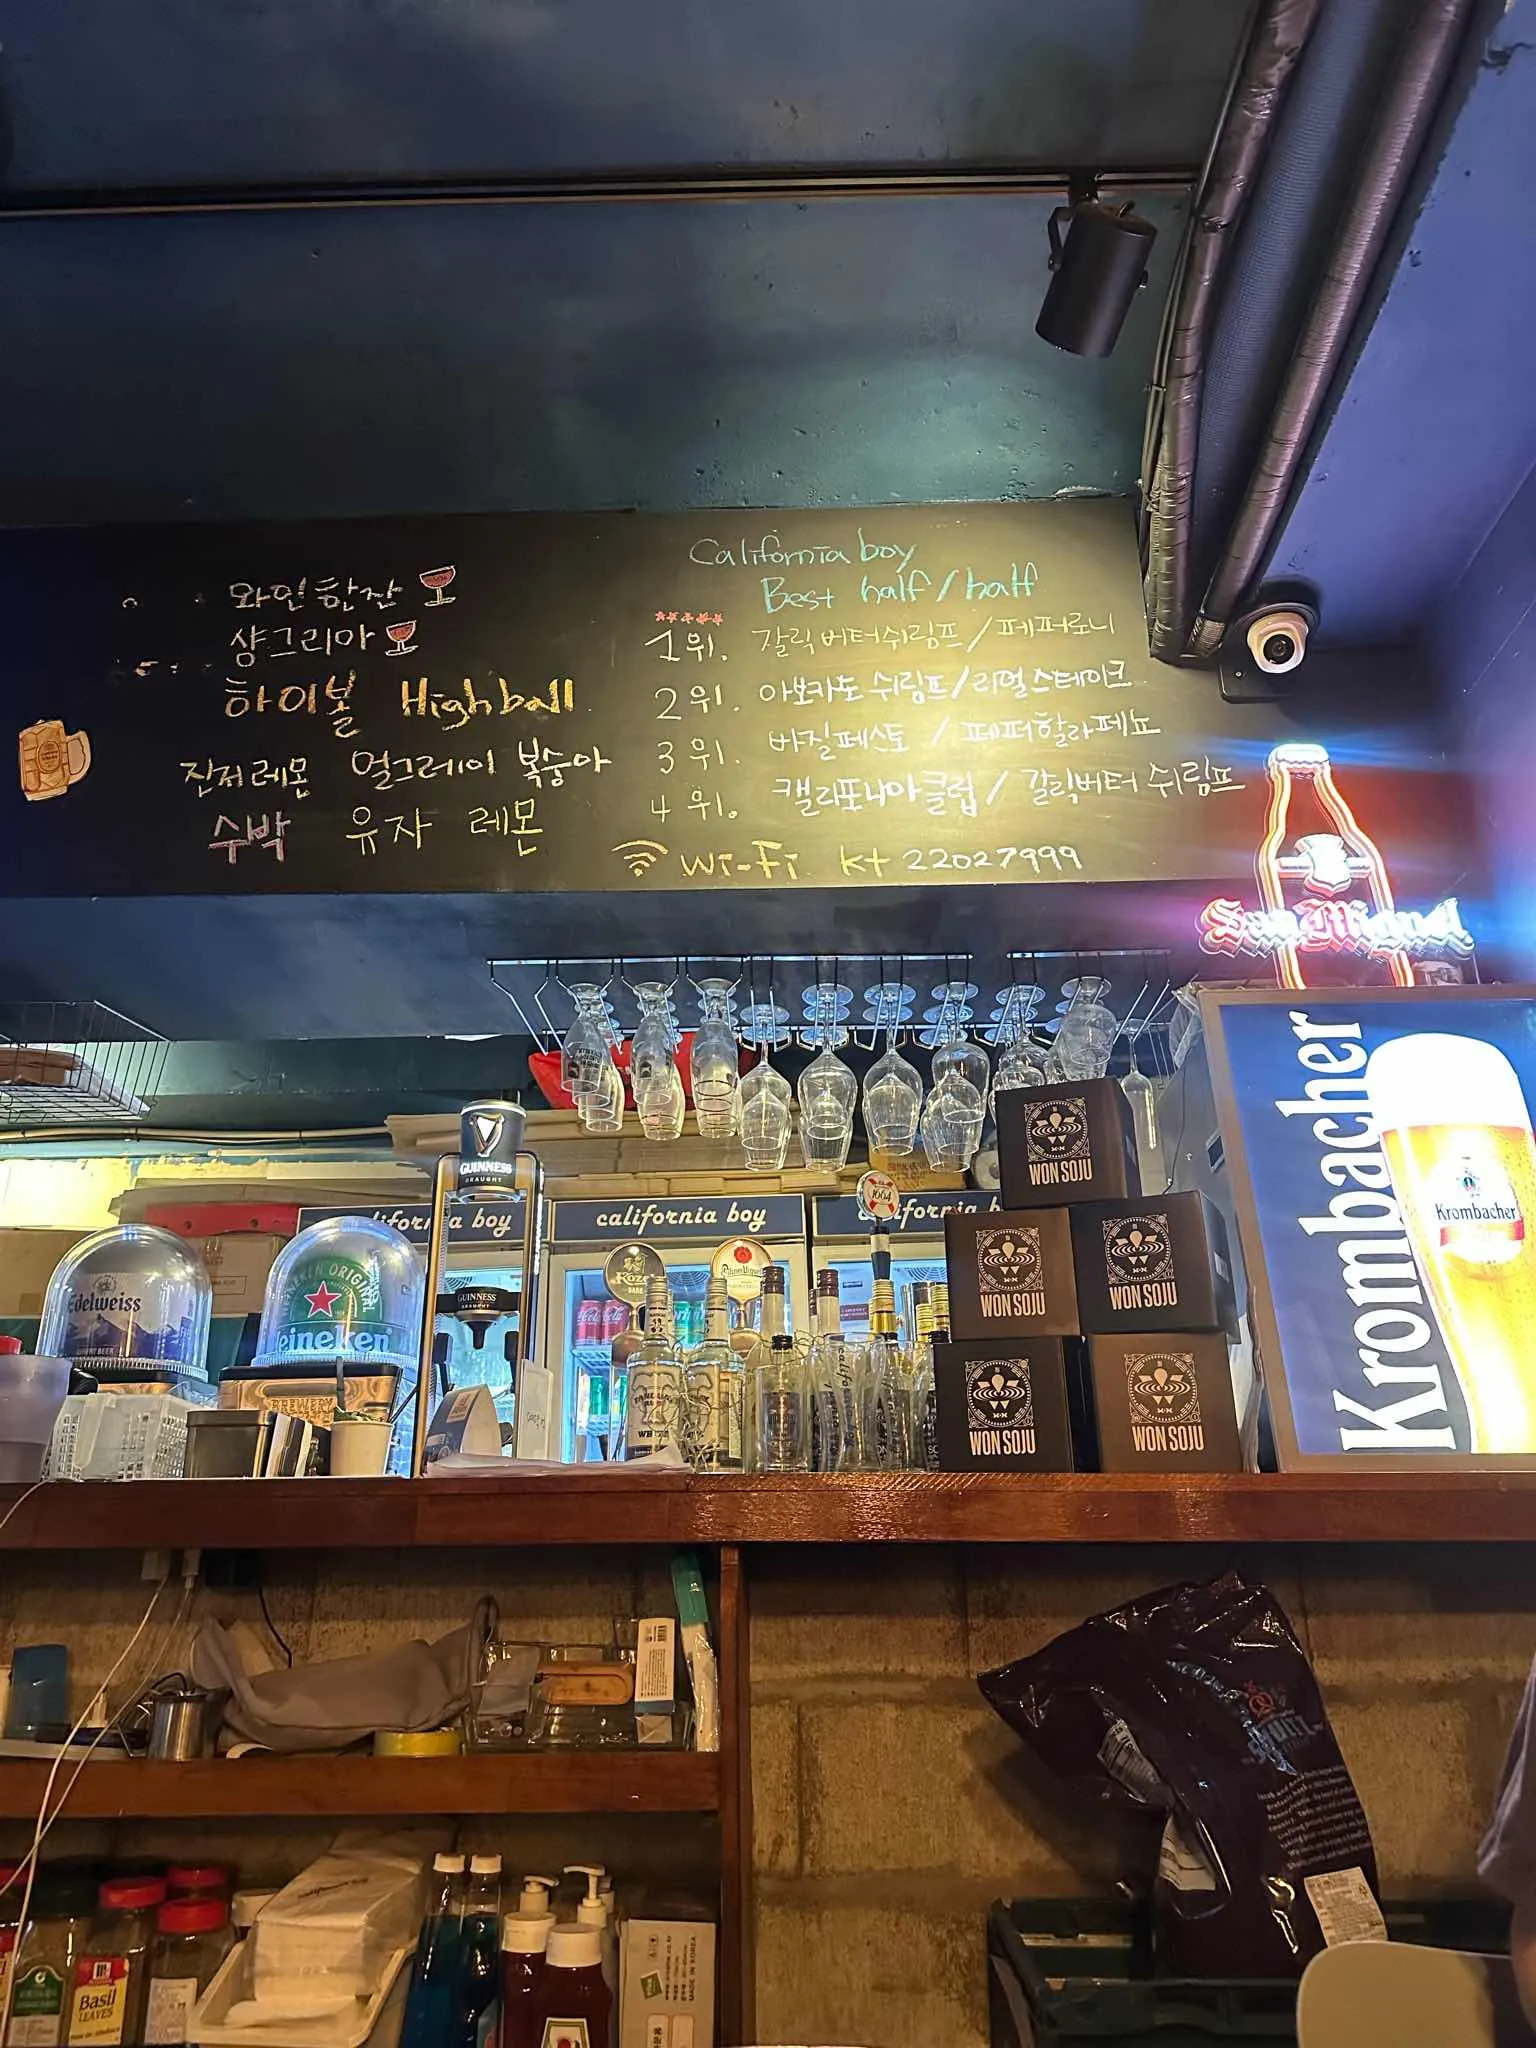 California boy
Best half/half
와인한잔
샹그리아
하이볼 Highball
진저레몬 얼그레이 복숭아
수박 유자 레몬
1위. 갈릭버터쉬림프/페퍼로니
2위. 아보카도 쉬림프/리얼스테이크
3위. 바질페스토 / 페퍼할라페뇨
4위. 캘리포니아클럽/갈릭버터 쉬림프
Wi-Fi kt 22027999
San Miguel
Krombacher
Krombacher
GUINNESS
DRAUGHT
GUINNESS
california boy
california boy
1664
Kozel
DARK
Edelweiss
HEINEKEN ORIGINAL
Heineken
Coca-Cola
WON SOJU
WON SOJU
WON SOJU
WON SOJU
WON SOJU
Basil
LEAVES
MADE IN KOREA